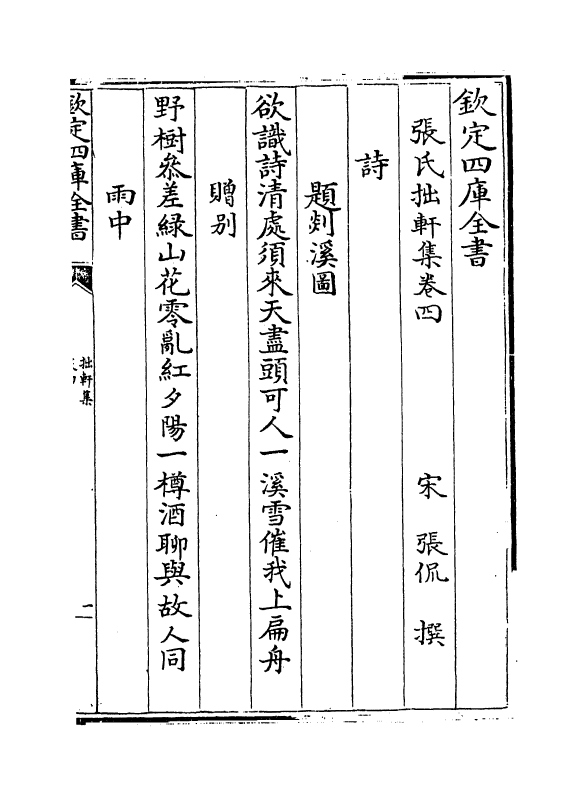 欽定四庫全書
張氏拙軒集卷四
宋 張侃 撰
詩
題剡溪圖
欲識詩清處須來天盡頭可人一溪雪催我上扁舟
贈别
野樹叅差緑山花零亂紅夕陽一樽酒聊與故人同
雨中
欽定四庫全書
拙軒集
二